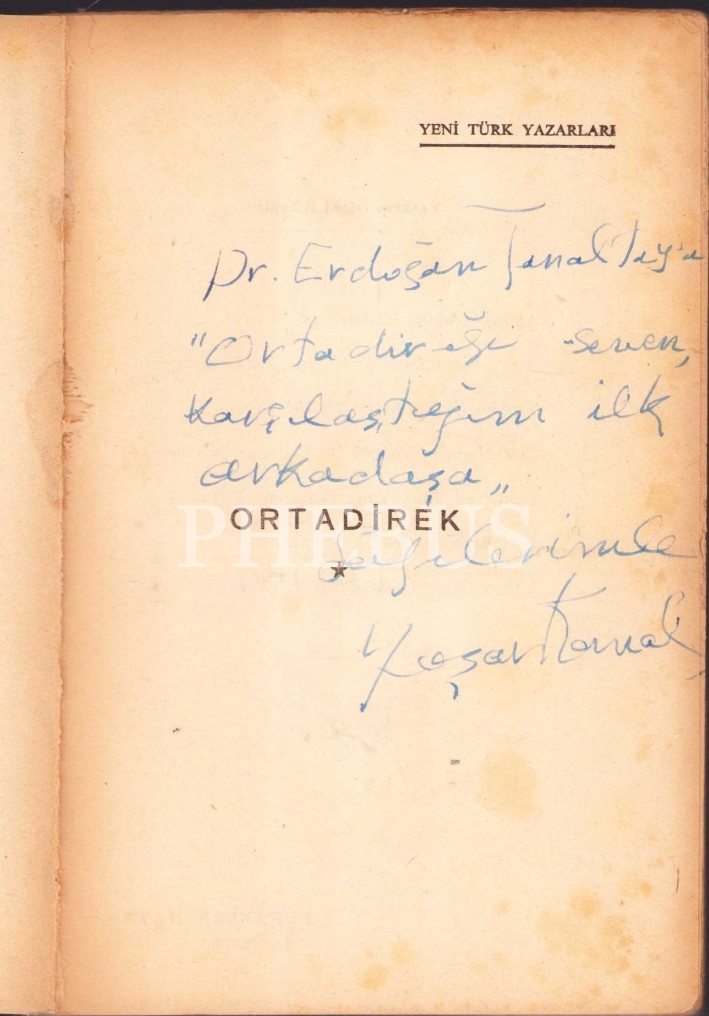 YENİ TÜRK YAZARLARI
Dr. Erdoğan Tanaltay'a
"Ortadireği seven,
karşılaştığım ilk
arkadaşa„
ORTADİREK
PHEBUS
Saygılarımla
Yaşar Kemal